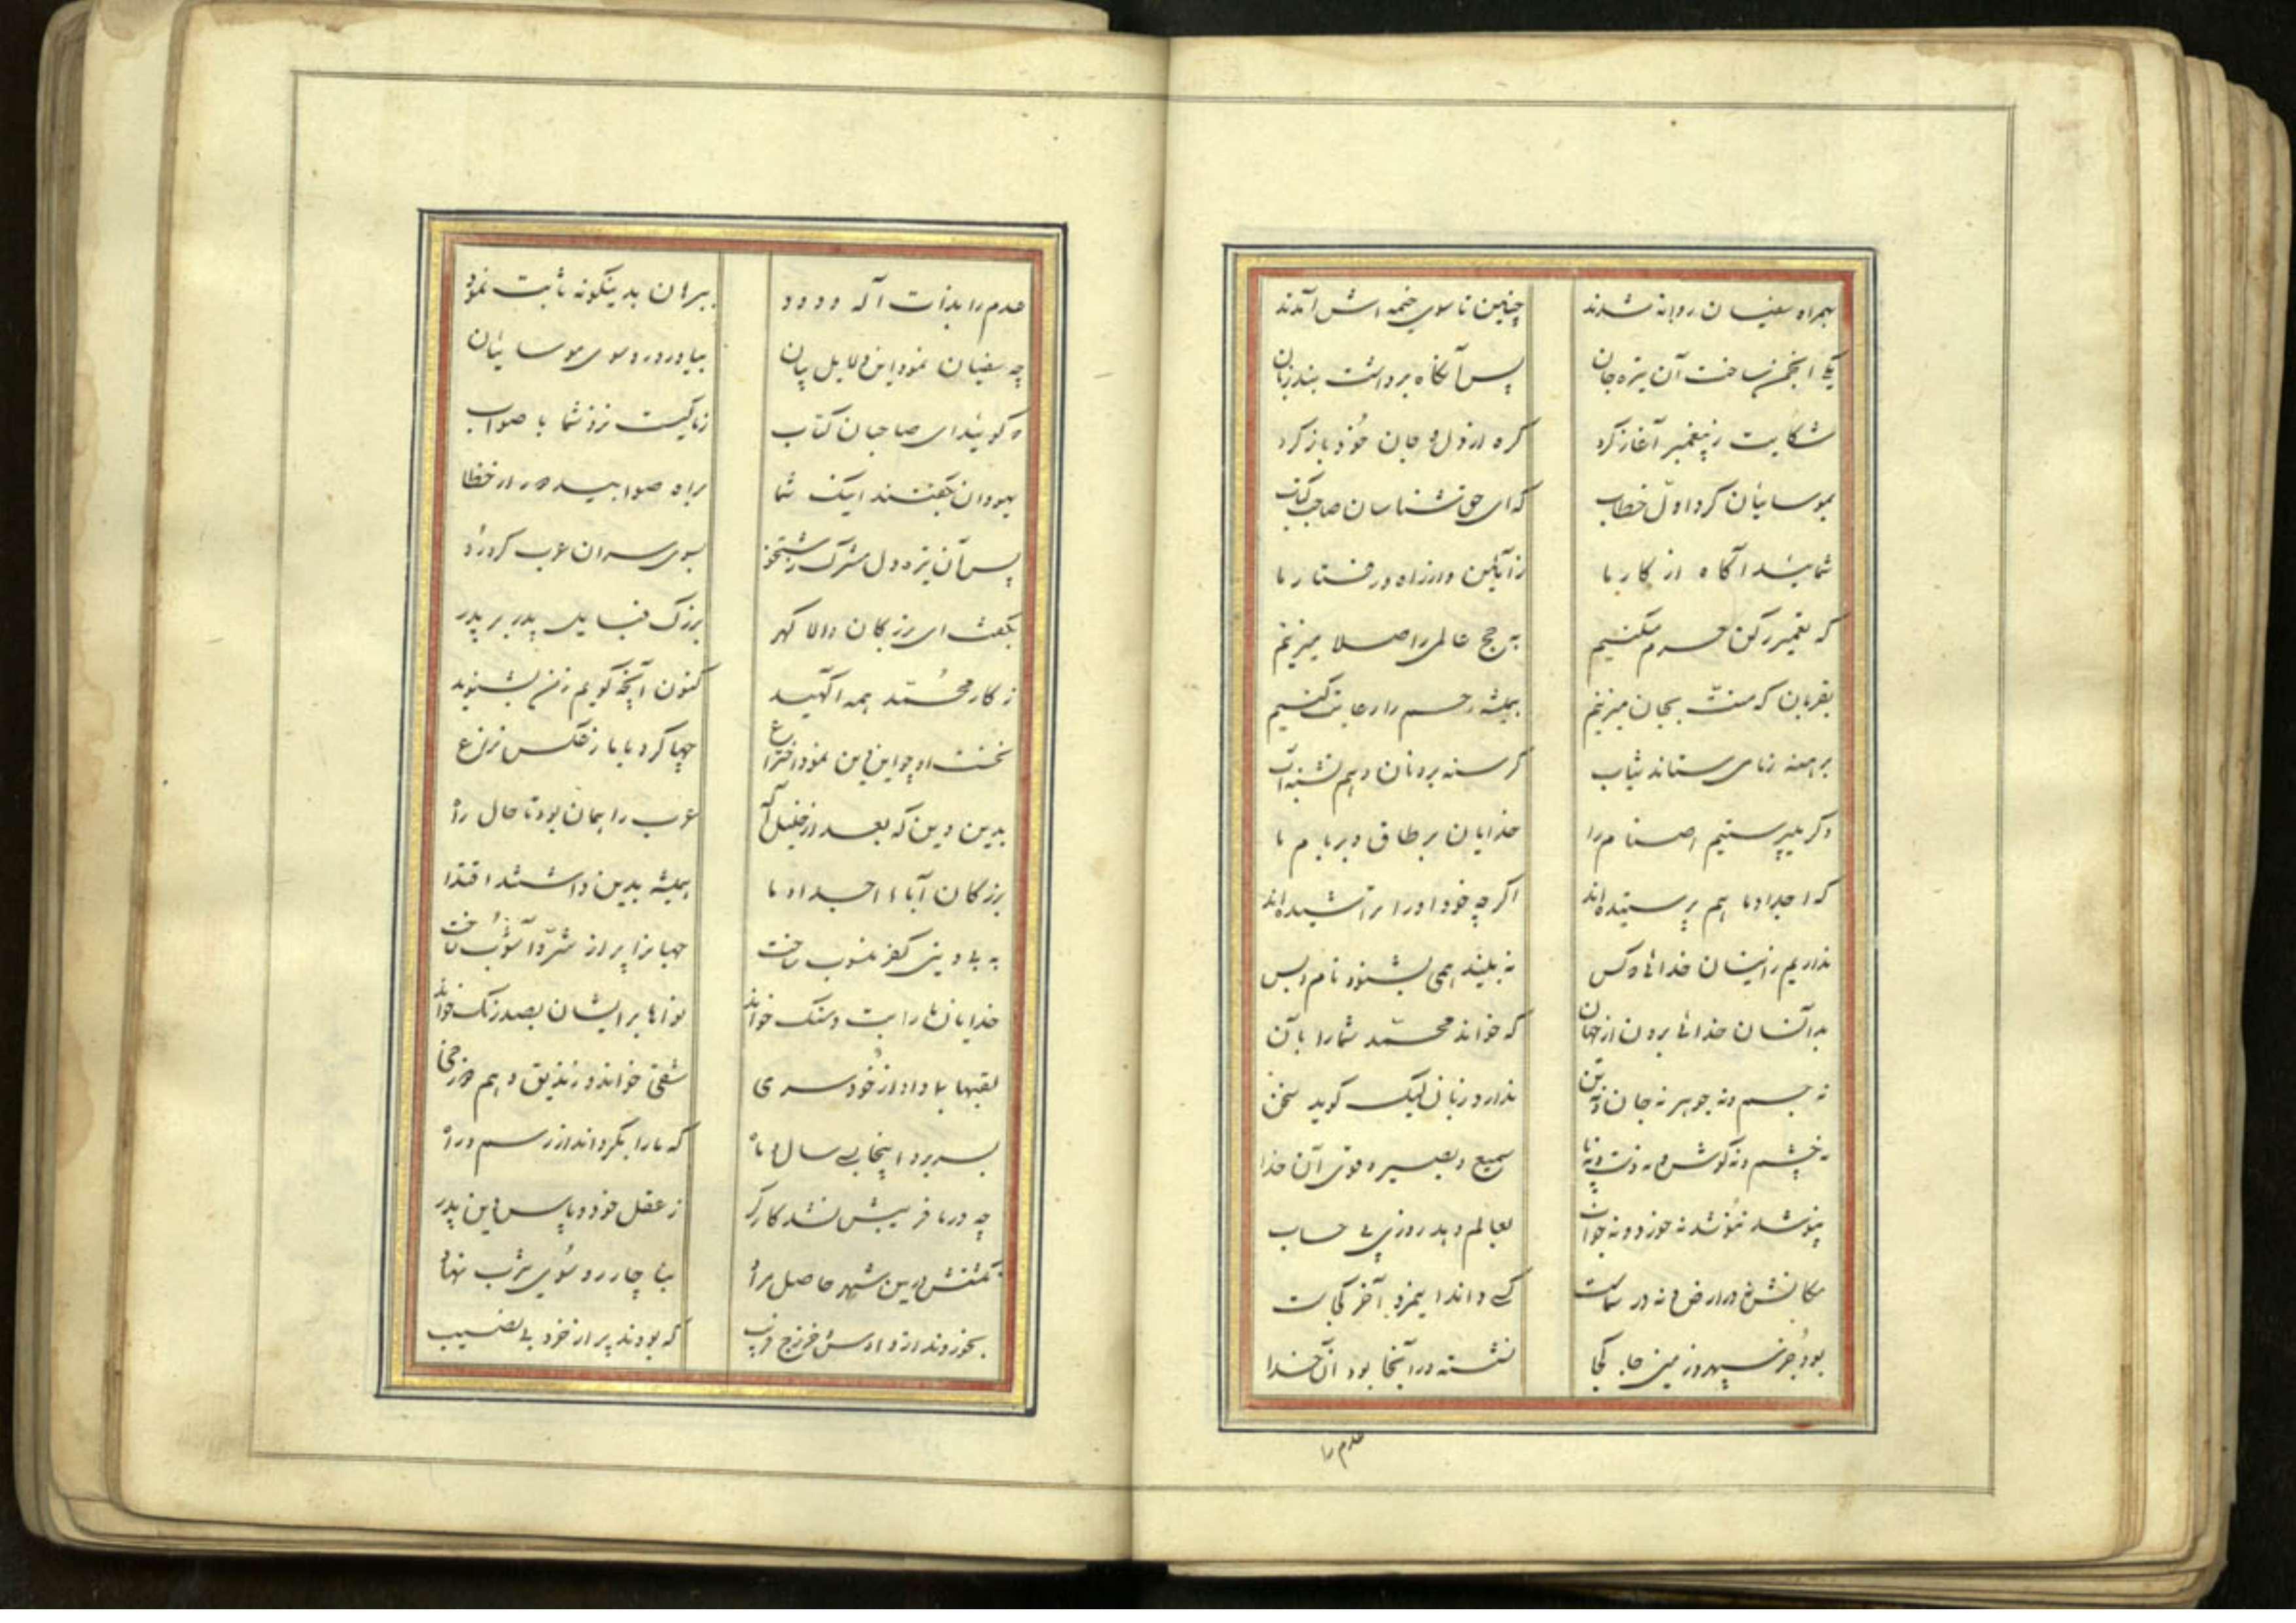 بهمراه سفیان روانه شدند چنین تا سوی خیمه اش آمدند
یکی انجمن ساخت آن تیره جان پس آنگاه برداشت بند زبان
شکایت ز پیغمبر آغاز کرد گره از دل و جان خود باز کرد
بموسائیان کرد اول خطاب که ای حق شناسان صاحب کتاب
شمائید آگاه از کار ما ز آئین و از راه و رفتار ما
که تعمیر رکن حرم میکنیم به حج عالمی را صلا میزنیم
بقربان که منت بجان میزنیم همیشه رحم را رعایت کنیم
برهنه ز مامی ستاند ثیاب گرسنه برد نان و هم تشنه آب
دگر میپرستیم اصنام را خدایان بر طاق و بر بام ما
که اجداد ما هم پرستیده اند اگرچه خود او را تراشیده اند
نداریم زاینسان خداها و کس نه بیند همی بشنود نام و بس
بدآنسان خداها برون از جهان که خواند محمد شما را بآن
نه جسم و نه جوهر نه جان و نه تن ندارد زبان لیک گوید سخن
نه چشم و نه گوش و نه دست و نه پا سمیع و بصیر و قوی آن خدا
نپوشد ننوشد نه خورد و نه خواب بعالم دهد روزی بی حساب
مکانش نه در ارض و نه در سماست کسی داند ایمرد آخر کجاست
بود جز سپهر و زمین جا کجا نشسته در آنجا بود آن خدا
عدم را
عدم را بذات آله ودود ببرهان بدینگونه ثابت نمود
چه سفیان نمود این دلایل بیان بیاورد رو سوی موسائیان
که گوئید ای صاحبان کتاب ز ما کیست نزد شما با صواب
یهودان بگفتند اینک شما براه صوابید و در از خطا
پس آن تیره دل مشرک زشتخو بسوی سران عرب کرد رو
بگفت ای بزرگان والا گهر بزرگ قبایل پدر بر پدر
ز کار محمد همه آگهید کنون آنچه گویم ز من بشنوید
نخست او چو این دین نمود اختراع چها کرد با ما ز عکس نزاع
بدین دین که بعد از خلیل اله عرب را همان بود تا حال راه
بزرگان آباء اجداد ما همیشه بدین داشتند اقتدا
به بی دینی کفر منسوب ساخت جهانرا پر از شر و آشوب ساخت
خدایان ما را بت و سنگ خواند نواها بر ایشان بصد رنگ خواند
لقبها بما داد از خودسری شقی خواند و زندیق و هم
بسر برد اینجا بسی سال و ماه که ما را بگرداند از رسم و راه
چه در ما فریبش نشد کارگر ز عقل خود و پاس دین پدر
نگشتش درین شهر حاصل مراد بناچار رو سوی یثرب نهاد
بخوردند از و اوس و خزرج فریب که بودند پر از خرد بی نصیب